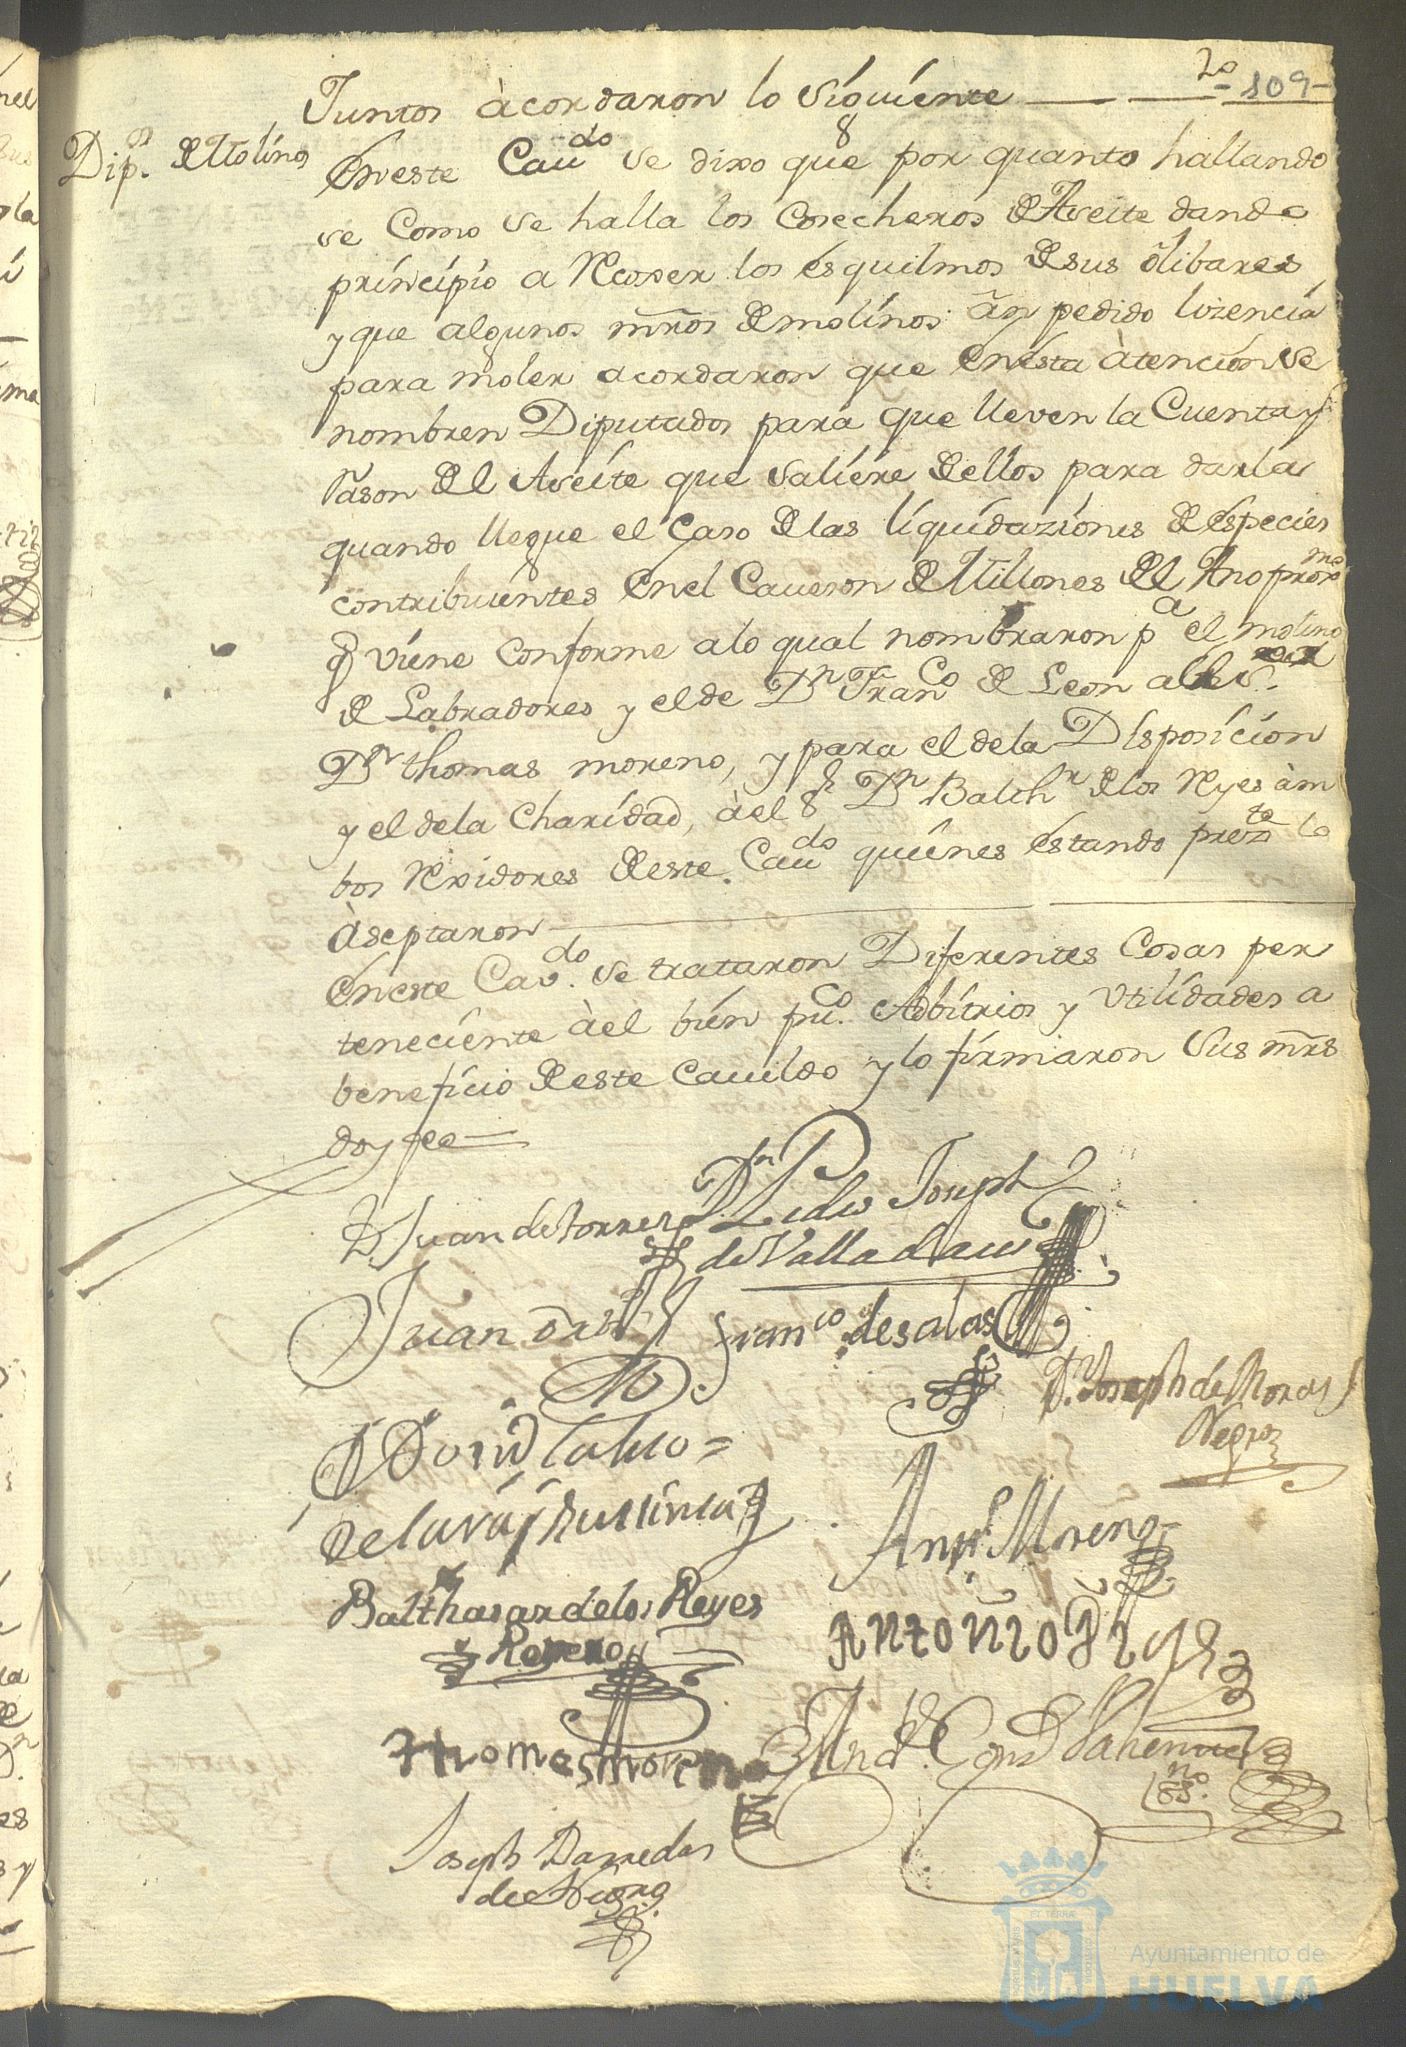 20
-109-
Juntos àcordaron lo siguiente
Dip.os de Molinos
En este Caudo se dixo que por quanto hallando
se como se halla los Cosecheros de Aseite dando
principio a Recoxer los esquilmos de sus olibares
y que algunos mros de molinos àn pedido lizencia
para moler acordaron que en esta àtencion se
nombren Diputados para que lleven la Cuenta y
rason del Aseite que saliere de ellos para darla
quando llegue el caso de las liquidaziones de especies
contribuientes en el Caueson de Millones del Ano proxmo
q viene conforme alo qual nombraron pa el molino
de Labradores y el de Dn Franco de Leon al
Dn thomas moreno, y para el dela Disposicion
y el dela Charidad, àel Sr Dn Balthr de los Reyes àm
bos Rexidores de este Caudo quienes estando prezte lo
àseptaron
En este Cavdo se trataron Diferentes Cosas per
teneciente àel bien puco. Adbitrios y Utilidades a
beneficio de este Cauildo y lo firmaron Sus mrs
doy fee
D Juan de torres
Dn Pedro Joseph
de Valladares
Juan
Franco de salas
Dn Joseph de Moras
Negro
Anto Moreno
Balthasar de los Reyes
Romero
Antonio
Thomas moreno
Joseph
de
Ayuntamiento de
HUELVA